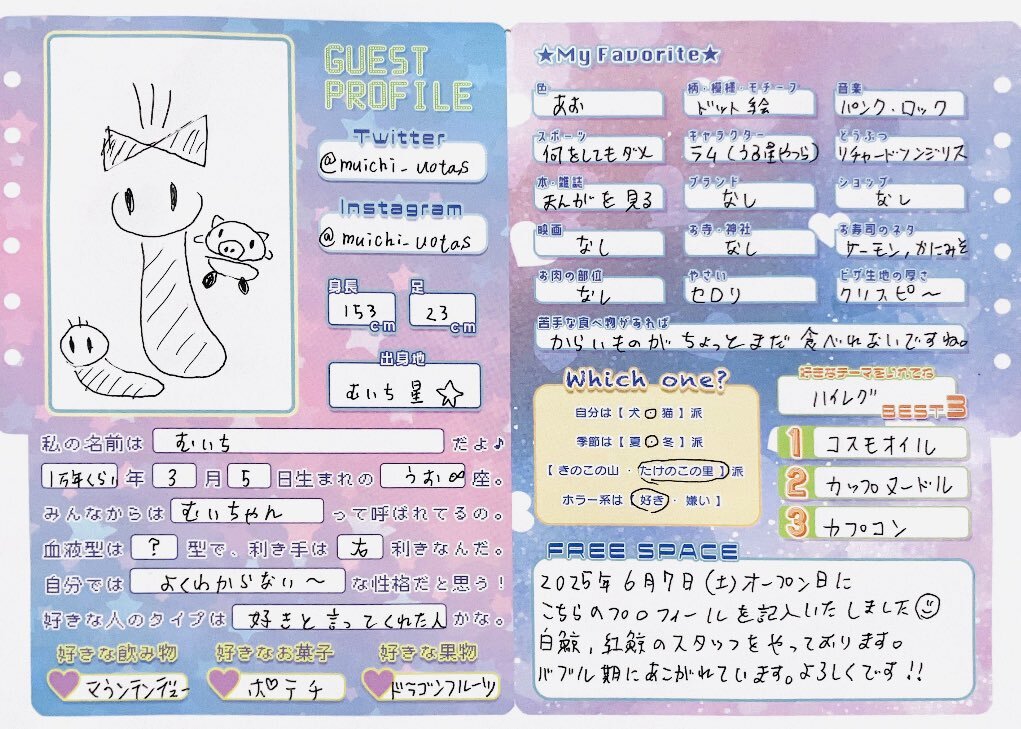 GUEST
PROFILE
Twitter
@muichi_uotas
Instagram
@muichi_uotas
身長
153cm
足
23cm
出身地
むいち星☆
私の名前は むいち だよ♪
1万年くらい年3月5日生まれのうお∞座。
みんなからはむいちゃんって呼ばれてるの。
血液型は?型で、利き手は右利きなんだ。
自分ではよくわからない〜な性格だと思う!
好きな人のタイプは好きと言ってくれた人かな。
好きな飲み物
マウンテンデュー
好きなお菓子
ポテチ
好きな果物
ドラゴンフルーツ
★My Favorite★
色
あお
柄・模様・モチーフ
ドット絵
音楽
パンク・ロック
スポーツ
何をしてもダメ
キャラクター
ラム(うる星やつら)
どうぶつ
リチャードソンジリス
本・雑誌
まんがを見る
ブランド
なし
ショップ
なし
映画
なし
お寺・神社
なし
お寿司のネタ
サーモン,かにみそ
お肉の部位
なし
やさい
セロリ
ピザ生地の厚さ
クリスピ〜
苦手な食べ物があれば
からいものがちょっとまだ食べれないですね。
Which one?
自分は【 犬・猫 】派
季節は【 夏・冬 】派
【 きのこの山・たけのこの里 】派
ホラー系は【 好き・嫌い 】
ハイレグ
BEST3
1 コスモオイル
2 カップヌードル
3 カプコン
FREE SPACE
2025年6月7日(土)オープン日に
こちらのプロフィールを記入いたしました☺
白鯨,紅鯨のスタッフをやっております。
バブル期にあこがれています。よろしくです!!